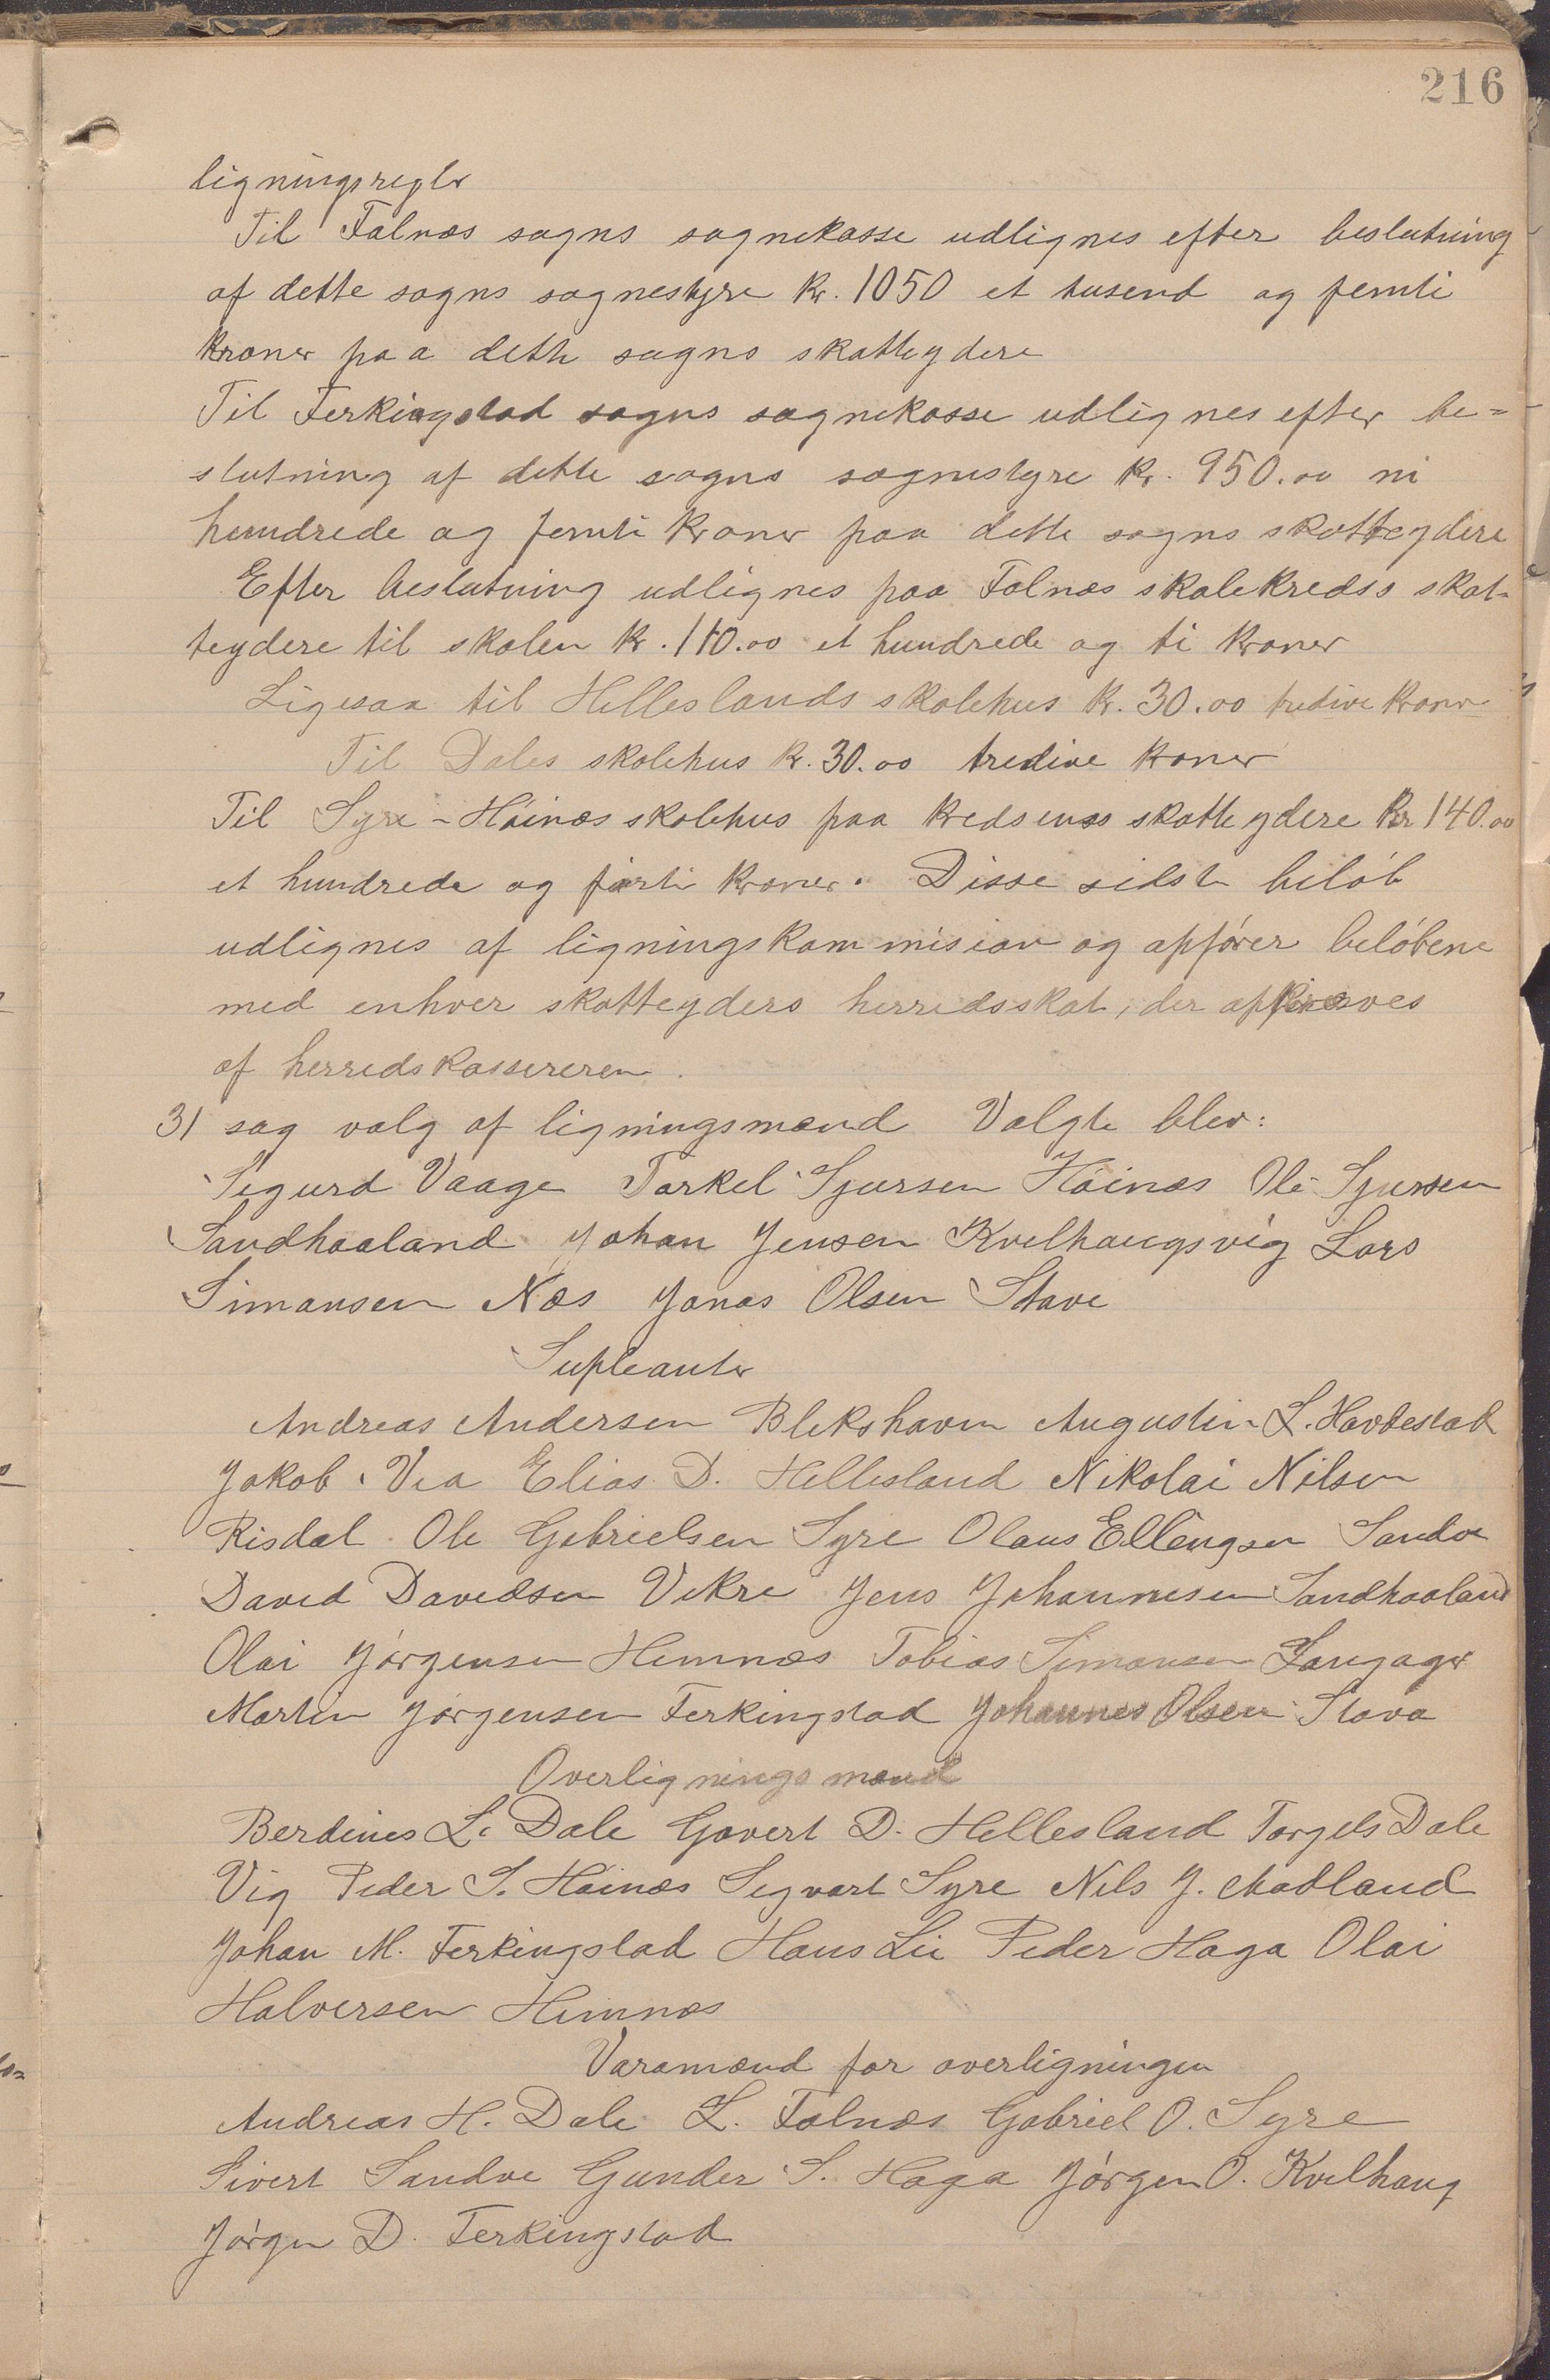 216
ligningsregler
Til Falnæs sogns sognekasse udlignes efter beslutning
af dette sogns sognestyre kr. 1050 et tusend og femti
kroner paa dette sogns skatteydere
Til Ferkingstad sogns sognekasse udlignes efter be=
slutning af dette sogns sognestyre kr. 950.00 ni
hundrede og femti kroner paa dette sogns skatteydere
Efter beslutning udlignes paa Falnæs skolekredss skat-
teydere til skolen kr. 110.00 et hundrede og ti kroner
Ligesaa til Helleslands skolehus kr. 30.00 tredive kroner
Til Dales skolehus kr. 30.00 tredive kroner
Til Syre-Höinæs skolehus paa kredsenss skatteydere kr 140.00
et hundrede og førti kroner. Disse sidste belöb
udlignes af ligningskommision og opförer belöbene
med enhver skatteyders herredsskat, der opkræves
af herredskassereren.
3/ sag valg af ligningsmænd Valgte blev:
Sigurd Vaage Torkel Sjursen Höinæs Ole Sjursen
Sandhaaland Johan Jensen Kvelhaugsvig Lars
Simonsen Næs Jonas Olsen Stave
Supleanter
Andreas Andersen Blekshavn Augustin L. Havdestad
Jakob Vea Elias D. Hellesland Nikolai Nilsen
Risdal Ole Gabrielsen Syre Olaus Ellingsen Sandve
David Davidsen Vikre Jens Johannesen Sandhaaland
Olai Jörgensen Hemnæs Tobias Simonsen Langager
Martin Jörgensen Ferkingstad Johannes Olsen Stava
Overligningsmænd
Berdines L. Dale Govert D. Hellesland Torgels Dale
Vig Peder S. Höinæs Segvart Syre Nils J. Madland
Johan M. Ferkingstad Hans Lie Peder Haga Olai
Halversen Hemnæs
Varamænd for overligningen
Andreas H. Dale L. Falnæs Gabriel O. Syre
Sivert Sandve Gunder S. Haga Jörgen O. Kvelhaug
Jörgen D. Ferkingstad